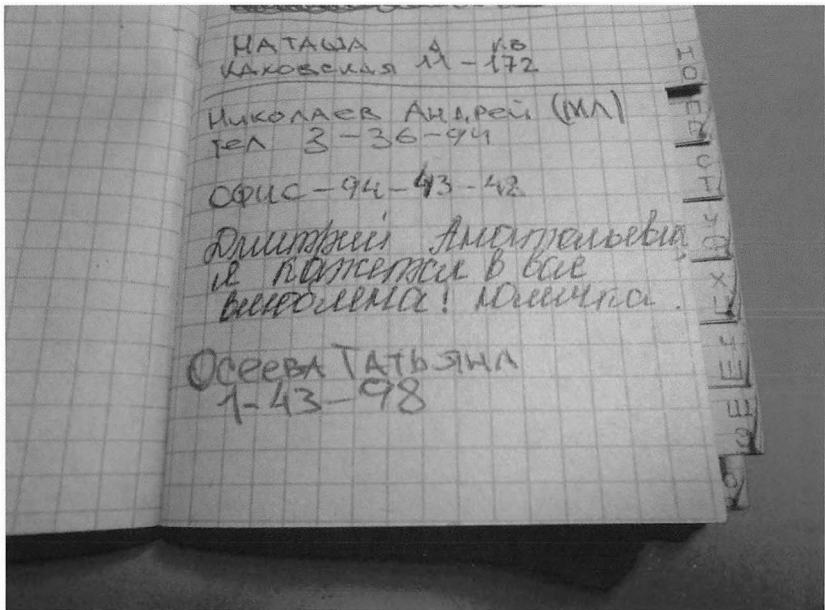 НАТАША Д КВ
КАХОВСКАЯ 11-172
НИКОЛАЕВ АНДРЕЙ (МЛ)
ТЕЛ 3-36-94
ОФИС-94-43-48
Дмитрий Анатольевич,
я кажется в вас
влюблена! Юличка.
ОСЕЕВА ТАТЬЯНА
1-43-98
Н
О
П
Р
С
Т
У
Ф
Х
Ц
Ч
Ш
Щ
Э
Ю